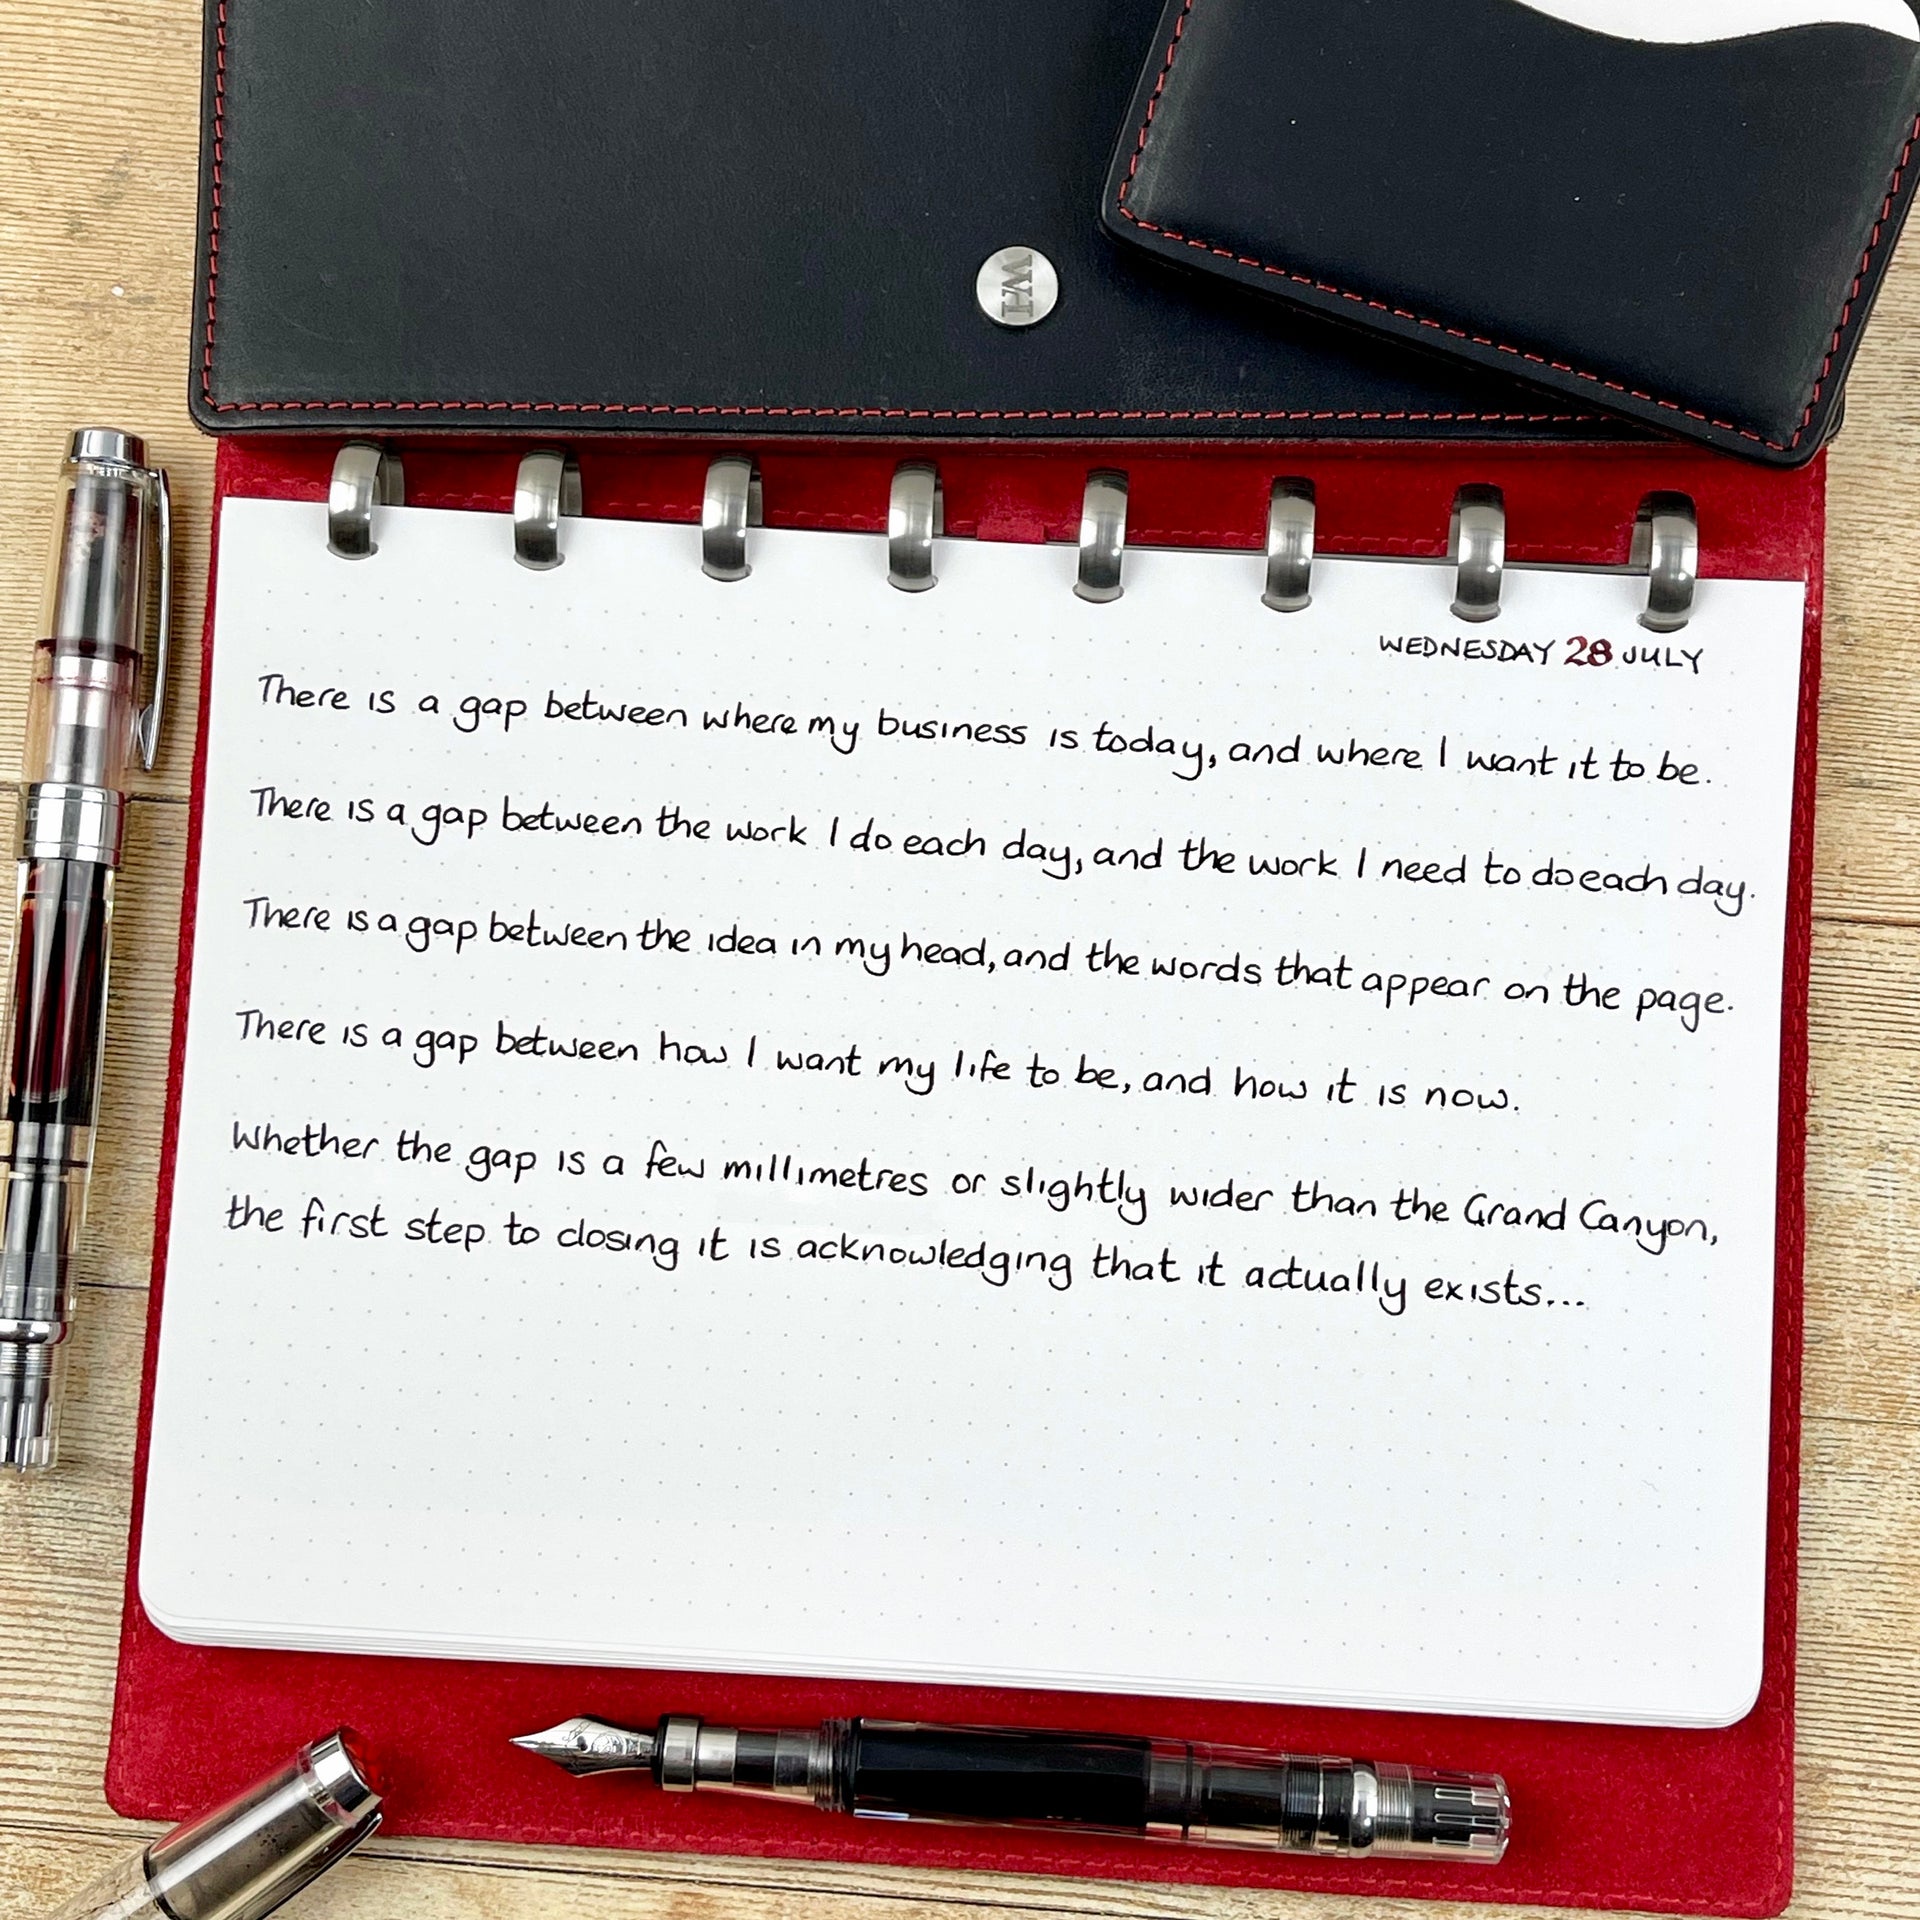 WH
WEDNESDAY 28 JULY
There is a gap between where my business is today, and where I want it to be.
There is a gap between the work I do each day, and the work I need to do each day.
There is a gap between the idea in my head, and the words that appear on the page.
There is a gap between how I want my life to be, and how it is now.
Whether the gap is a few millimetres or slightly wider than the Grand Canyon,
the first step to closing it is acknowledging that it actually exists...